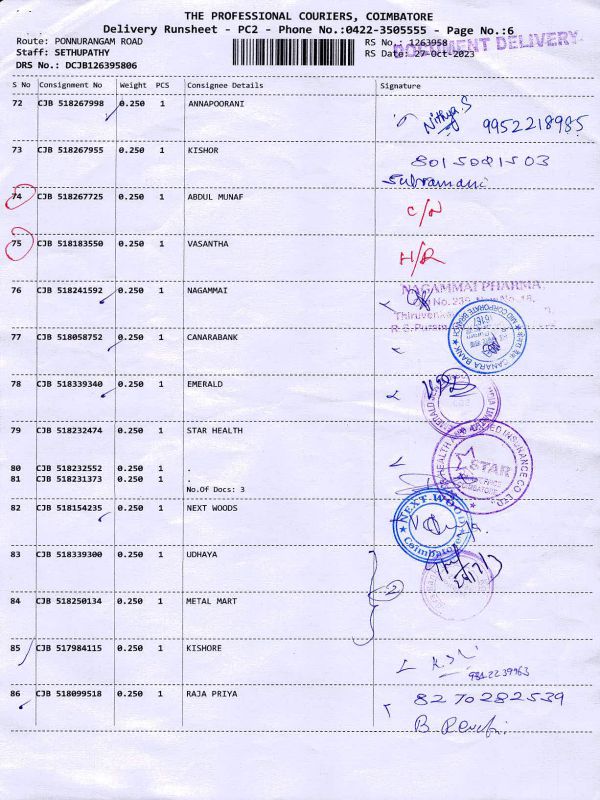 THE PROFESSIONAL COURIERS, COIMBATORE
Delivery Runsheet - PC2 - Phone No.:0422-3505555 - Page No.:6
Route: PONNURANGAM ROAD
RS No.: 1263958
DOCUMENT DELIVERY
Staff: SETHUPATHY
RS Date: 27-Oct-2023
DRS No.: DCJB126395806
S No Consignment No Weight PCS Consignee Details Signature
72 CJB 518267998 0.250 1 ANNAPOORANI Nithya.S 9952218985
73 CJB 518267955 0.250 1 KISHOR 8015081503
Subramani
74 CJB 518267725 0.250 1 ABDUL MUNAF C/N
75 CJB 518183550 0.250 1 VASANTHA H/R
76 CJB 518241592 0.250 1 NAGAMMAI NAGAMMAI PHARMA
77 CJB 518058752 0.250 1 CANARABANK CANARA BANK MID CORPORATE BRANCH
78 CJB 518339340 0.250 1 EMERALD
79 CJB 518232474 0.250 1 STAR HEALTH STAR
80 CJB 518232552 0.250 1 .
81 CJB 518231373 0.250 1 .
No.Of Docs: 3
82 CJB 518154235 0.250 1 NEXT WOODS NEXT WOODS Coimbatore
83 CJB 518339300 0.250 1 UDHAYA
84 CJB 518250134 0.250 1 METAL MART 2
85 CJB 517984115 0.250 1 KISHORE
9812239963
86 CJB 518099518 0.250 1 RAJA PRIYA 8270282539